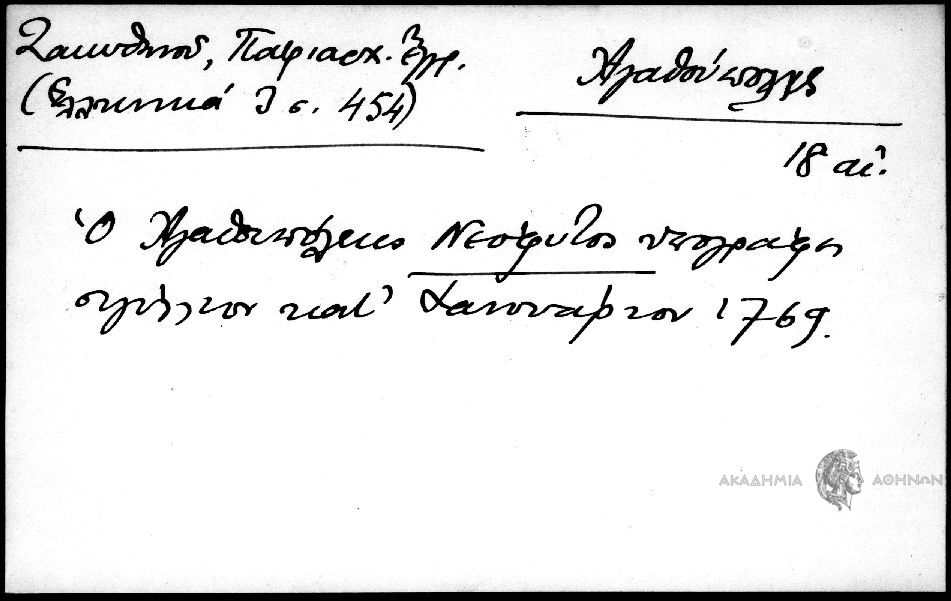 Ζακυθηνοῦ, Πατριαρχ. Ἔγγρ.
(Ἑλληνικά 3 σ. 454)
Ἀγαθούπολις
18 αἰ.
Ὁ Ἀγαθουπόλεως Νεόφυτος ὑπογράφει
σιγίλλιον κατ' Ἰανουάριον 1769.
ΑΚΑΔΗΜΙΑ ΑΘΗΝΩΝ